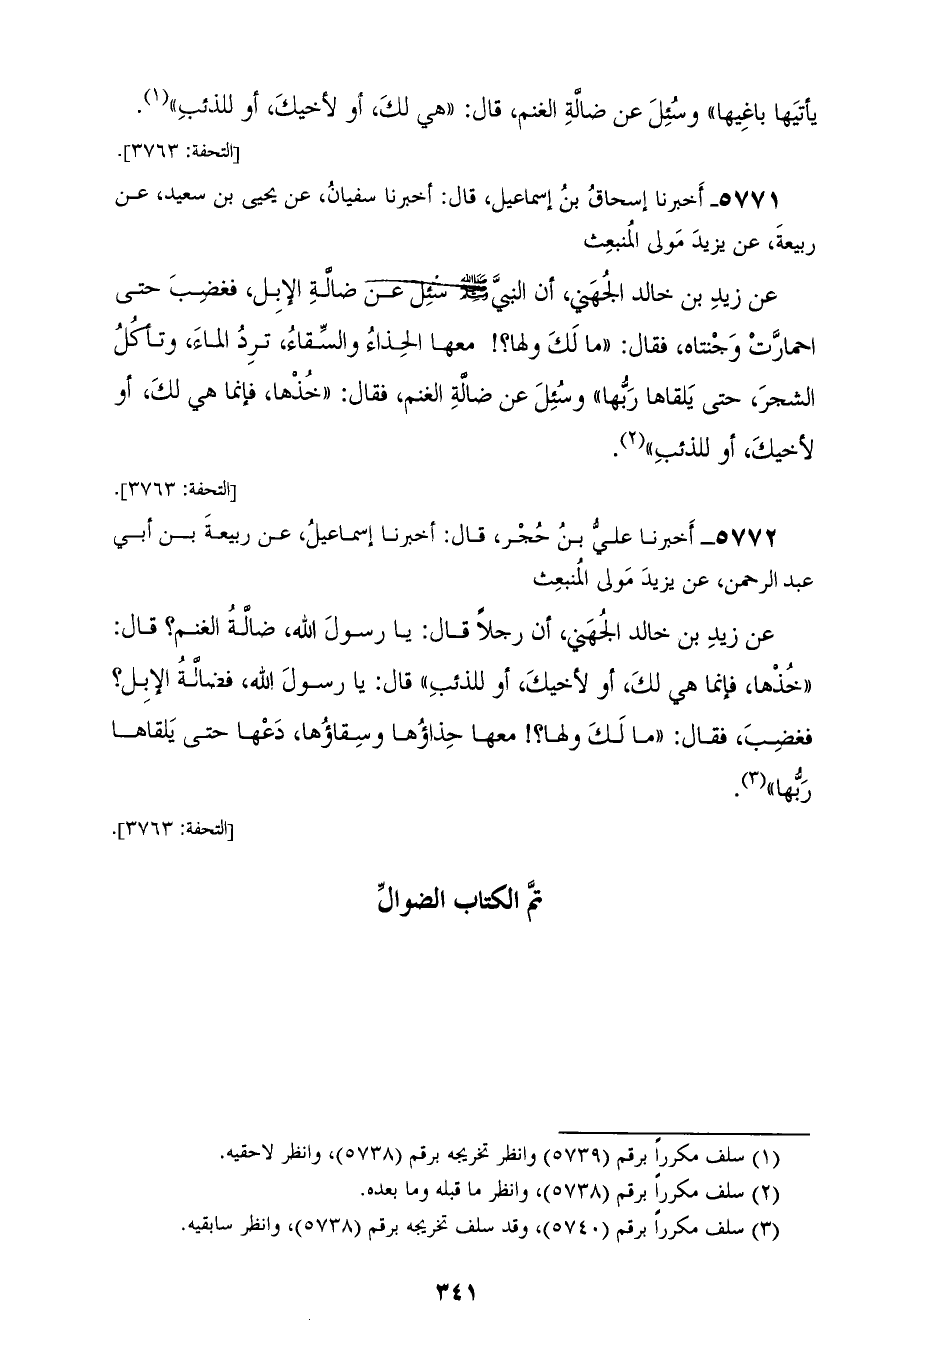 يأتيَها باغِيها» وسُئِلَ عن ضالَّةِ الغنم، قال: «هي لكَ، أو لأخيكَ، أو للذئبِ»(١).
[التحفة: ٣٧٦٣].
٥٧٧١ـ أَخبرنا إسحاقُ بنُ إسماعيل، قال: أخبرنا سفيانُ، عن يحيى بن سعيد، عن
ربيعةَ، عن يزيدَ مَولى المُنبعِث
عن زيدِ بن خالد الجُهَني، أن النبيَّ ﷺ سُئِل عن ضالَّةِ الإبل، فغضِبَ حتى
احمارَّتْ وَجْنتاه، فقال: «ما لَكَ ولها؟! معها الحِذاءُ والسِّقاءُ، تردُ الماءَ، وتأكُلُ
الشجرَ، حتى يَلقاها رَبُّها» وسُئِلَ عن ضالَّةِ الغنم، فقال: «خُذْها، فإنما هي لكَ، أو
لأخيكَ، أو للذئبِ»(٢).
[التحفة: ٣٧٦٣].
٥٧٧٢ـ أَخبرنا عليُّ بنُ حُجْر، قال: أخبرنا إسماعيلُ، عن ربيعةَ بن أبي
عبد الرحمن، عن يزيدَ مَولى المُنبعِث
عن زيدِ بن خالد الجُهَني، أن رجلاً قال: يا رسولَ الله، ضالَّةُ الغنم؟ قال:
«خُذْها، فإنما هي لكَ، أو لأخيكَ، أو للذئبِ» قال: يا رسولَ الله، فضالَّةُ الإبل؟
فغضِبَ، فقال: «ما لَكَ ولها؟! معها حِذاؤُها وسِقاؤُها، دَعْها حتى يَلقاها
رَبُّها»(٣).
[التحفة: ٣٧٦٣].
تمَّ الكتاب الضوالِّ
(١) سلف مكرراً برقم (٥٧٣٩) وانظر تخريجه برقم (٥٧٣٨)، وانظر لاحقيه.
(٢) سلف مكرراً برقم (٥٧٣٨)، وانظر ما قبله وما بعده.
(٣) سلف مكرراً برقم (٥٧٤٠)، وقد سلف تخريجه برقم (٥٧٣٨)، وانظر سابقيه.
٣٤١